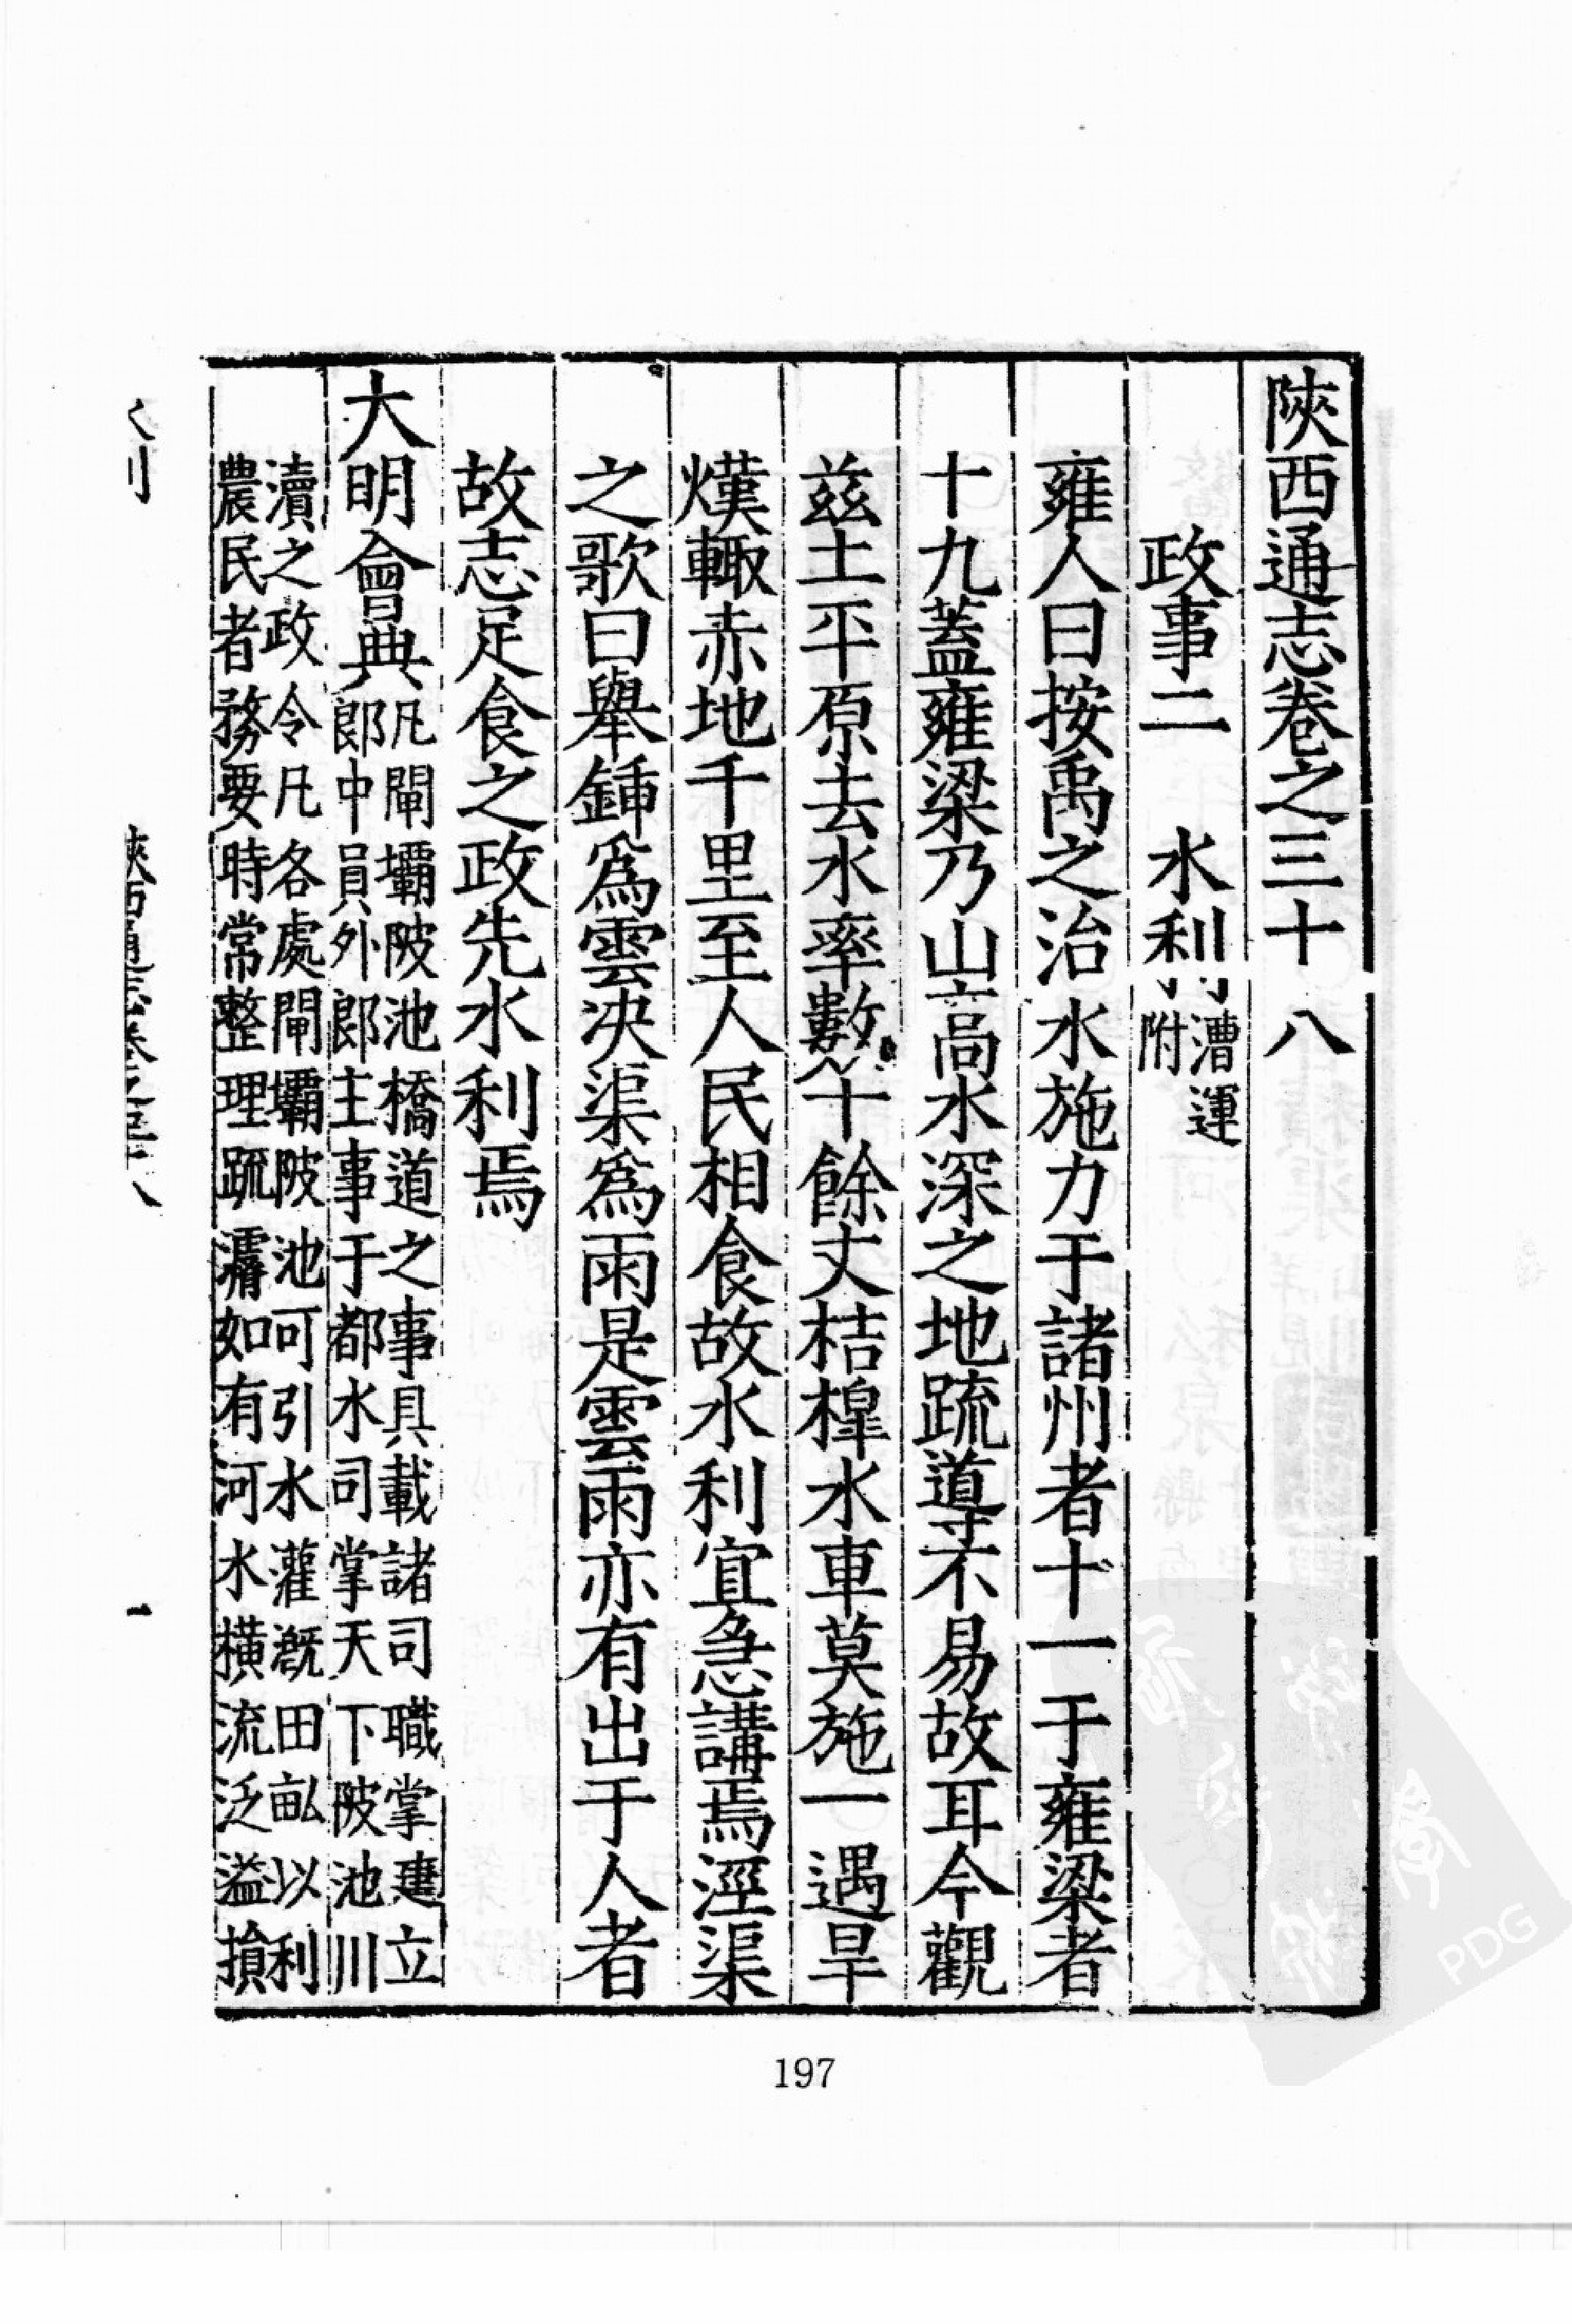 陝西通志卷之三十八
政事二　水利漕運附
雍人曰按禹之治水施力于諸州者十一于雍梁者
十九蓋雍梁乃山高水深之地疏導不易故耳今觀
兹土平原去水率數十餘丈桔槔水車莫施一遇旱
熯輙赤地千里至人民相食故水利宜急講焉涇渠
之歌曰舉鍤爲雲决渠爲雨是雲雨亦有出于人者
故志足食之政先水利焉
大明會典
凡閘壩陂池橋道之事具載諸司職掌建立
郎中員外郎主事于都水司掌天下陂池川
瀆之政令凡各處閘壩陂池可引水灌漑田畝以利
農民者務要時常整理疏濬如有河水橫流泛溢損
陝西通志卷之三十八
一
197
PDG